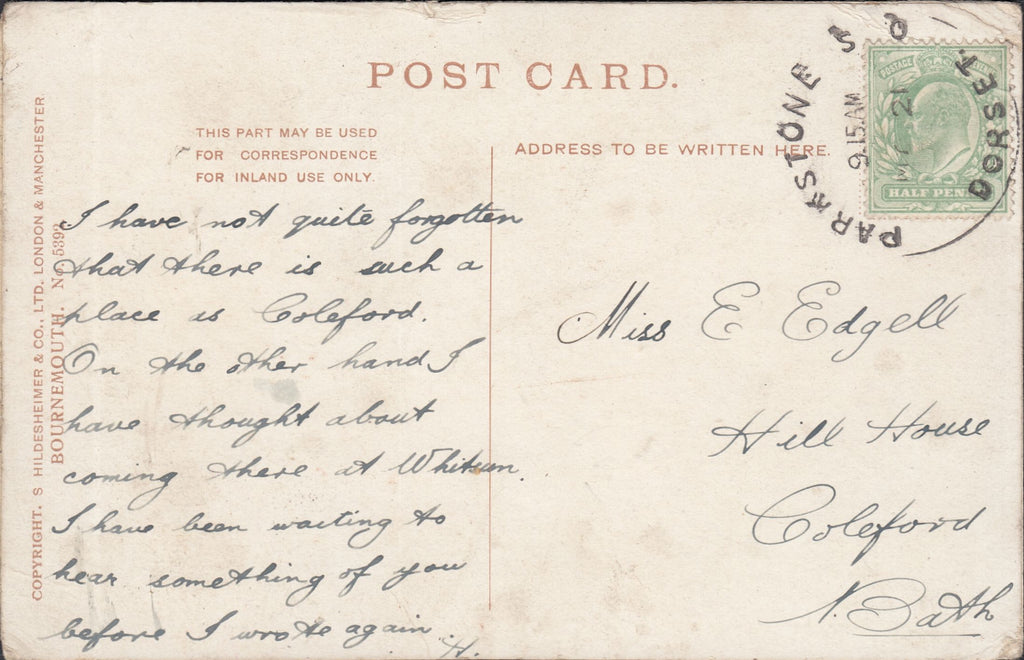 POST CARD.
THIS PART MAY BE USED
FOR CORRESPONDENCE
FOR INLAND USE ONLY.
ADDRESS TO BE WRITTEN HERE.
COPYRIGHT. S HILDESHEIMER & CO., LTD. LONDON & MANCHESTER
BOURNEMOUTH. No. 5392
PARKSTONE S.O.
DORSET.
9.15AM
21
POSTAGE
HALF PEN
I have not quite forgotten
that there is such a
place as Coleford.
On the other hand I
have thought about
coming there at Whitsun.
I have been waiting to
hear something of you
before I wrote again.
H.
Miss E Edgell
Hill House
Coleford
N. Bath